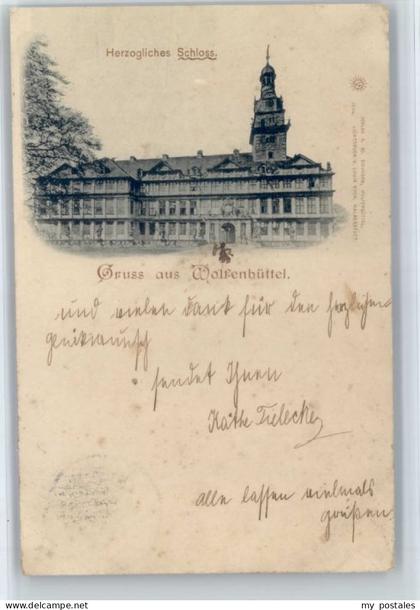 Herzogliches Schloss.
Gruss aus Wolfenbüttel.
und vielen dank für den herzlichen
Glückwunsch
sendet Ihnen
Käthe Tielecke
alle lassen vielmals
grüßen
my postales